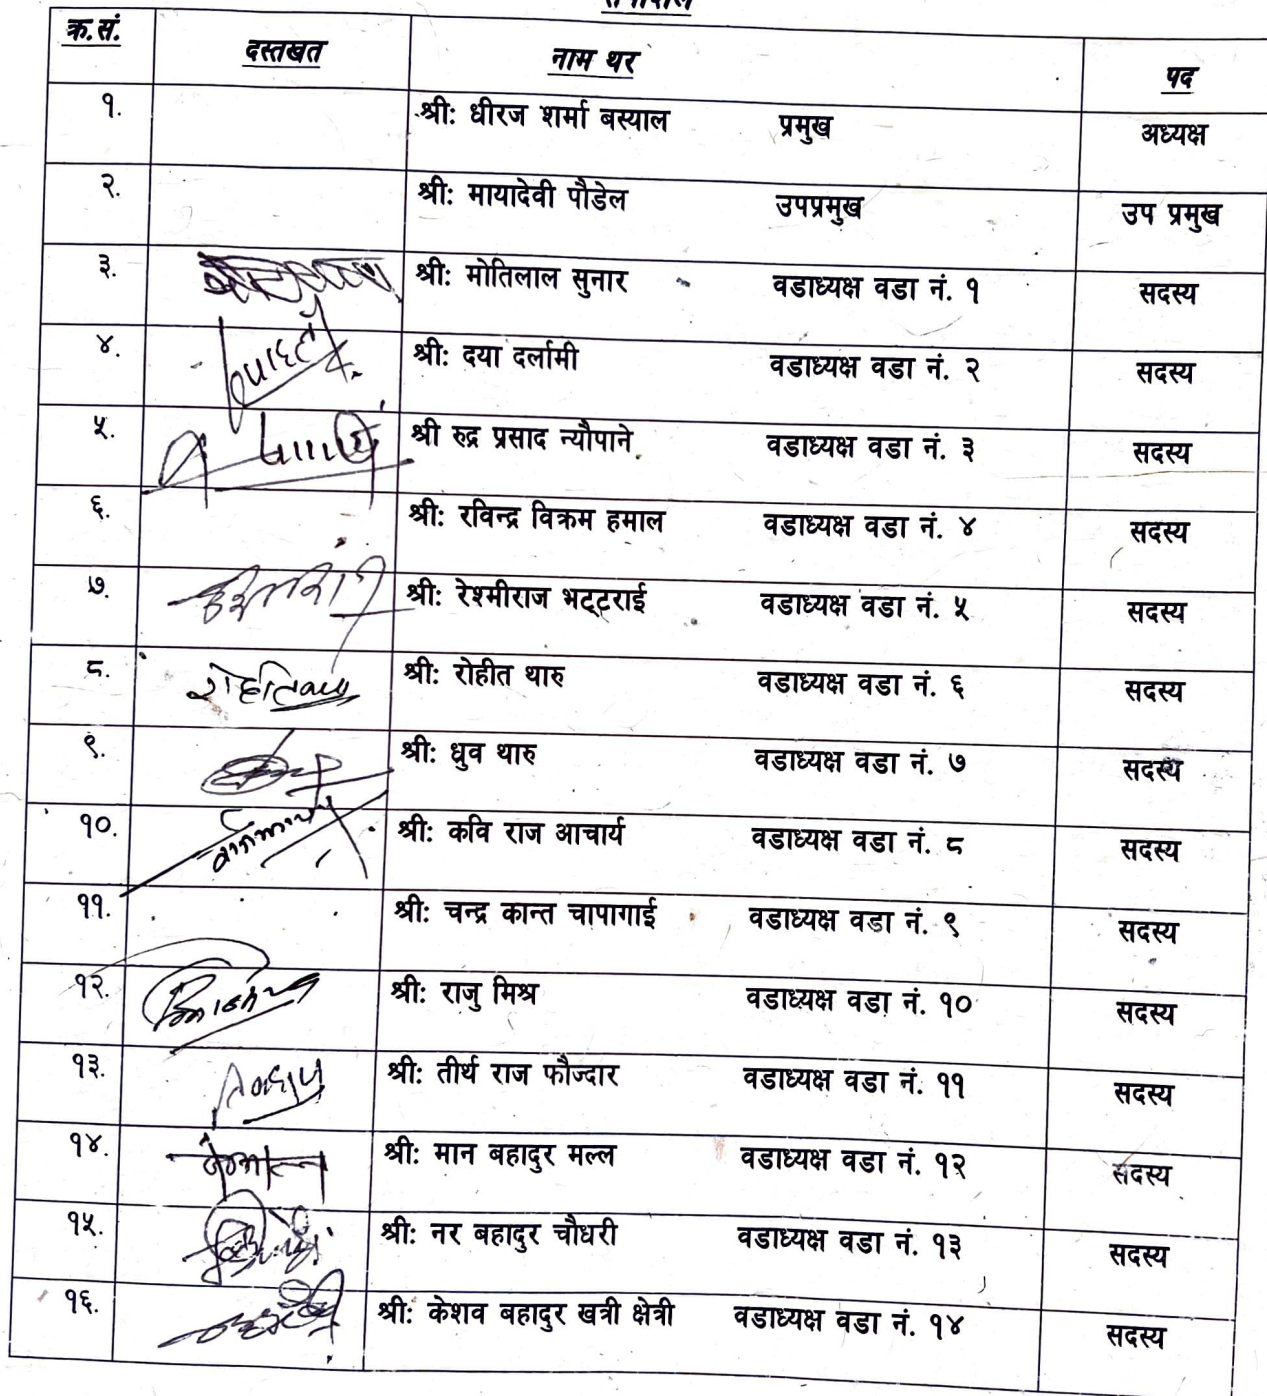 क्र.सं. दस्तखत नाम थर पद
१. श्री: धीरज शर्मा बस्याल प्रमुख अध्यक्ष
२. श्री: मायादेवी पौडेल उपप्रमुख उप प्रमुख
३. श्री: मोतिलाल सुनार वडाध्यक्ष वडा नं. १ सदस्य
४. श्री: दया दर्लामी वडाध्यक्ष वडा नं. २ सदस्य
५. श्री रुद्र प्रसाद न्यौपाने वडाध्यक्ष वडा नं. ३ सदस्य
६. श्री: रविन्द्र विक्रम हमाल वडाध्यक्ष वडा नं. ४ सदस्य
७. श्री: रेश्मीराज भट्टराई वडाध्यक्ष वडा नं. ५ सदस्य
८. श्री: रोहीत थारु वडाध्यक्ष वडा नं. ६ सदस्य
९. श्री: ध्रुव थारु वडाध्यक्ष वडा नं. ७ सदस्य
१०. श्री: कवि राज आचार्य वडाध्यक्ष वडा नं. ८ सदस्य
११. श्री: चन्द्र कान्त चापागाई वडाध्यक्ष वडा नं. ९ सदस्य
१२. श्री: राजु मिश्र वडाध्यक्ष वडा नं. १० सदस्य
१३. श्री: तीर्थ राज फौज्दार वडाध्यक्ष वडा नं. ११ सदस्य
१४. श्री: मान बहादुर मल्ल वडाध्यक्ष वडा नं. १२ सदस्य
१५. श्री: नर बहादुर चौधरी वडाध्यक्ष वडा नं. १३ सदस्य
१६. श्री: केशव बहादुर खत्री क्षेत्री वडाध्यक्ष वडा नं. १४ सदस्य